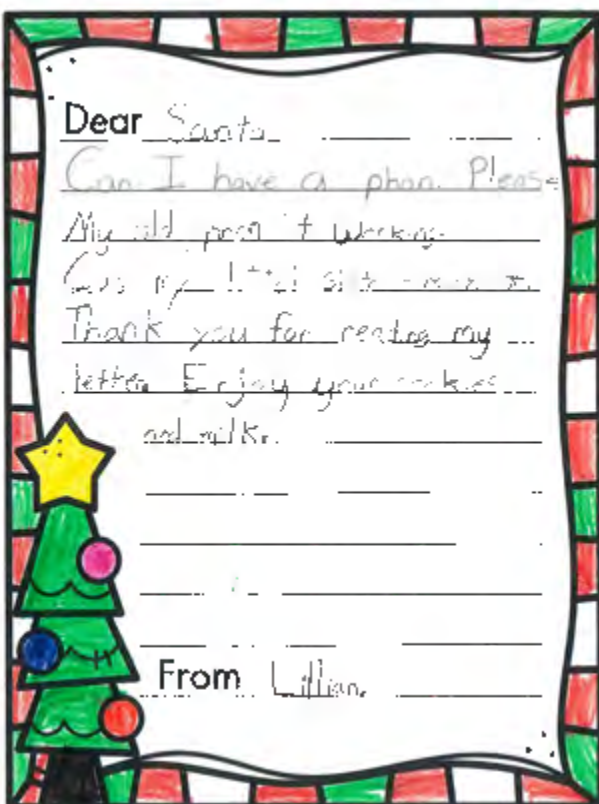 Dear Santa
Can I have a phon. Please
My old phon 't working
my
Thank you for reading my
letter. Enjoy your cookies
and milk.
From Lillian.